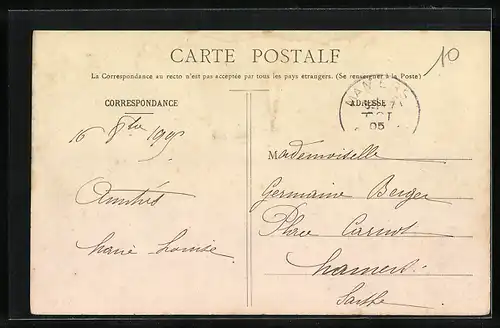 10
CARTE POSTALE
La Correspondance au recto n'est pas acceptée par tous les pays étrangers. (Se renseigner à la Poste)
CORRESPONDANCE
ADRESSE
05
16 8bre 1905
Amitiés
Marie Louise
Mademoiselle
Germaine Berger
Place Carnot
Mamers
Sarthe